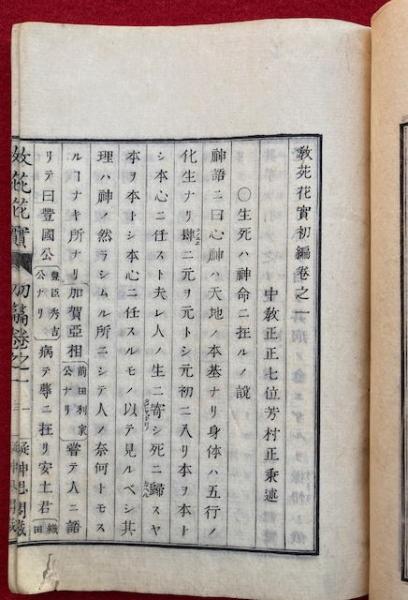 教苑花實初編卷之一
中教正正七位芳村正秉述
○生死ハ神命ニ在ルノ說
神語ニ曰心神ハ天地ノ本基ナリ身体ハ五行ノ
化生ナリ肆ニ元ヲ元トシ元初ニ入リ本ヲ本ト
シ本心ニ任スト夫レ人ノ生ニ寄シ死ニ歸スヤ
本ヲ本トシ本心ニ任スルモノ以テ見ルベシ其
理ハ神ノ然ラシムル所ニシテ人ノ奈何トモス
ルヿナキ所ナリ加賀亞相前田利家公ナリ嘗テ人ニ語
リテ曰豐國公豐臣秀吉公ナリ病テ蓐ニ在リ安土君織田
教苑花實 初編卷之一 神思閣藏